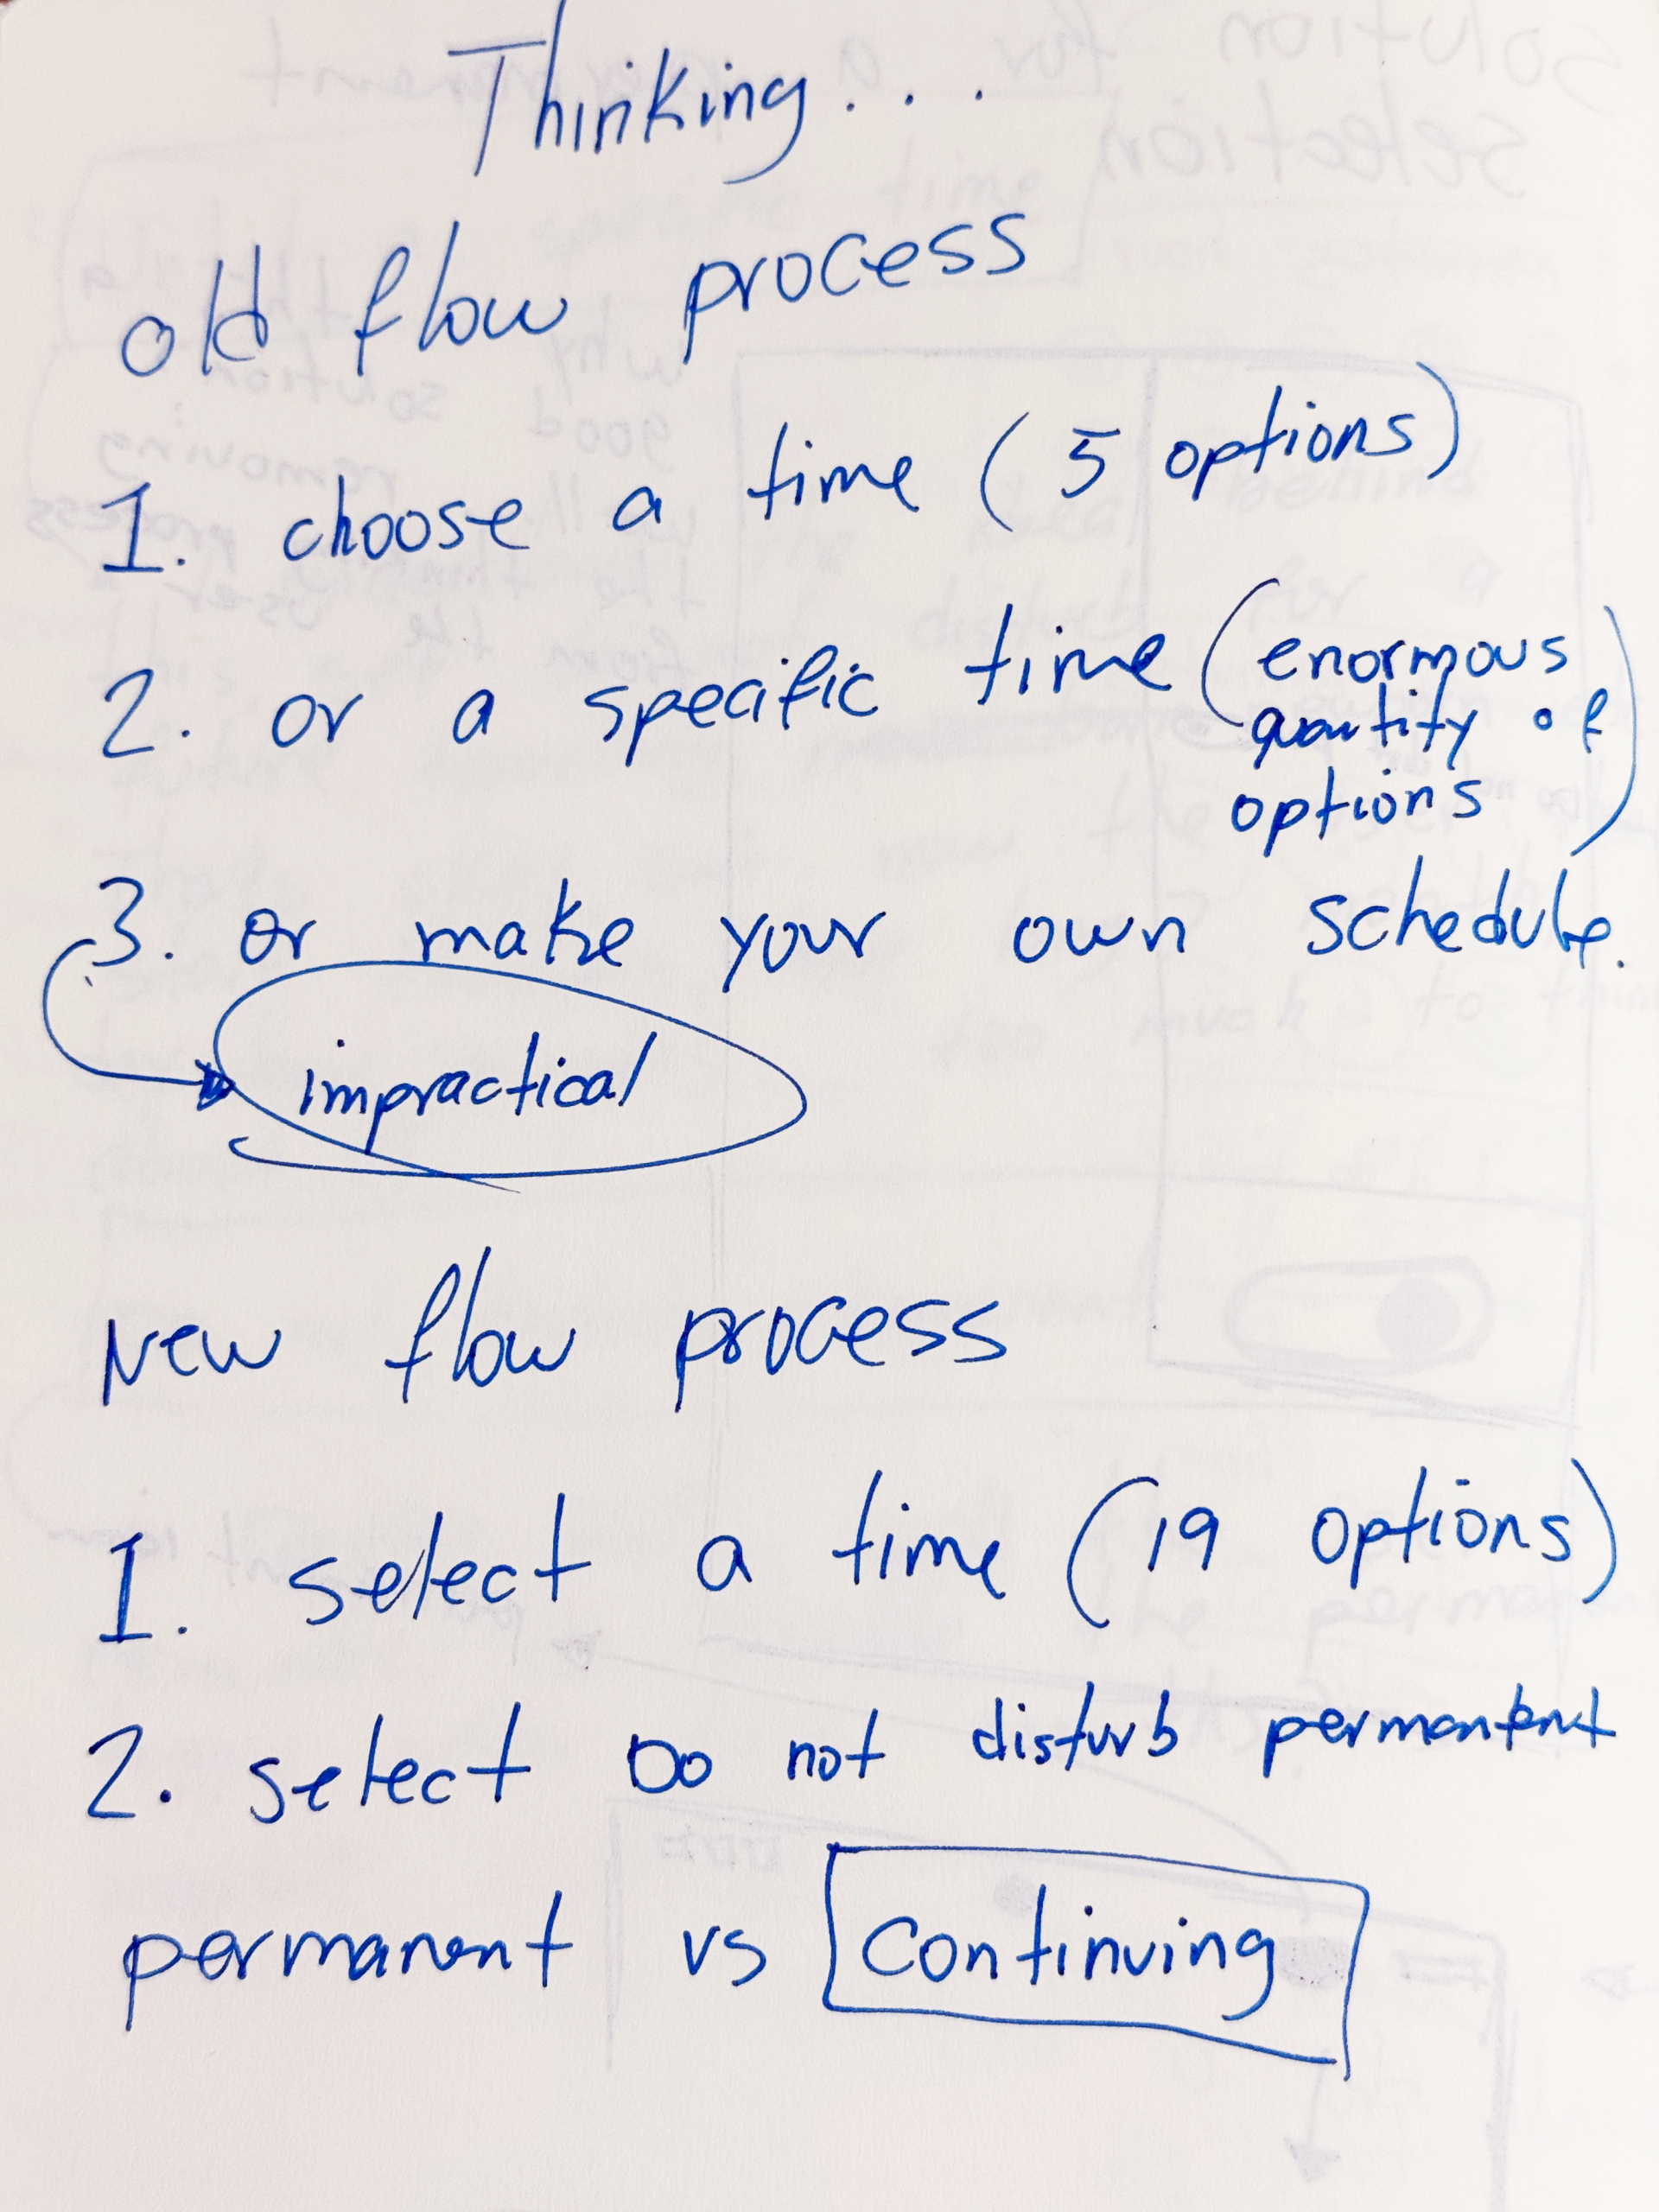 Thinking...
old flow process
1. choose a time (5 options)
2. or a specific time (enormous
quantity of
options)
3. or make your own schedule.
impractical
New flow process
1. select a time (19 options)
2. select DO not disturb permantent
permanent vs continuing